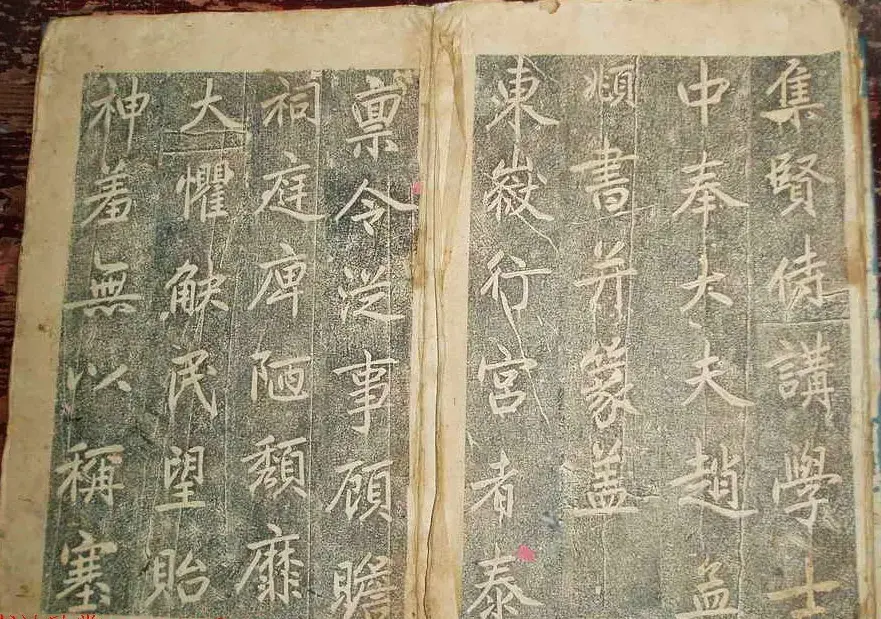 集賢侍講學士
中奉大夫趙孟
頫書并篆盖
東嶽行宮者泰
禀令從事顧瞻
祠庭庳陋頽靡
大懼觖民望貽
神羞無以稱塞